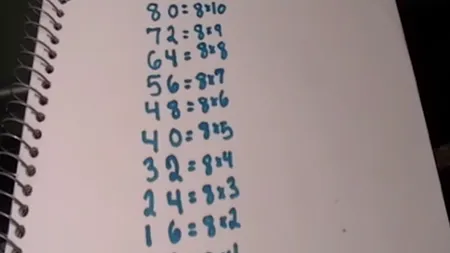 80=8×10
72=8×9
64=8×8
56=8×7
48=8×6
40=8×5
32=8×4
24=8×3
16=8×2